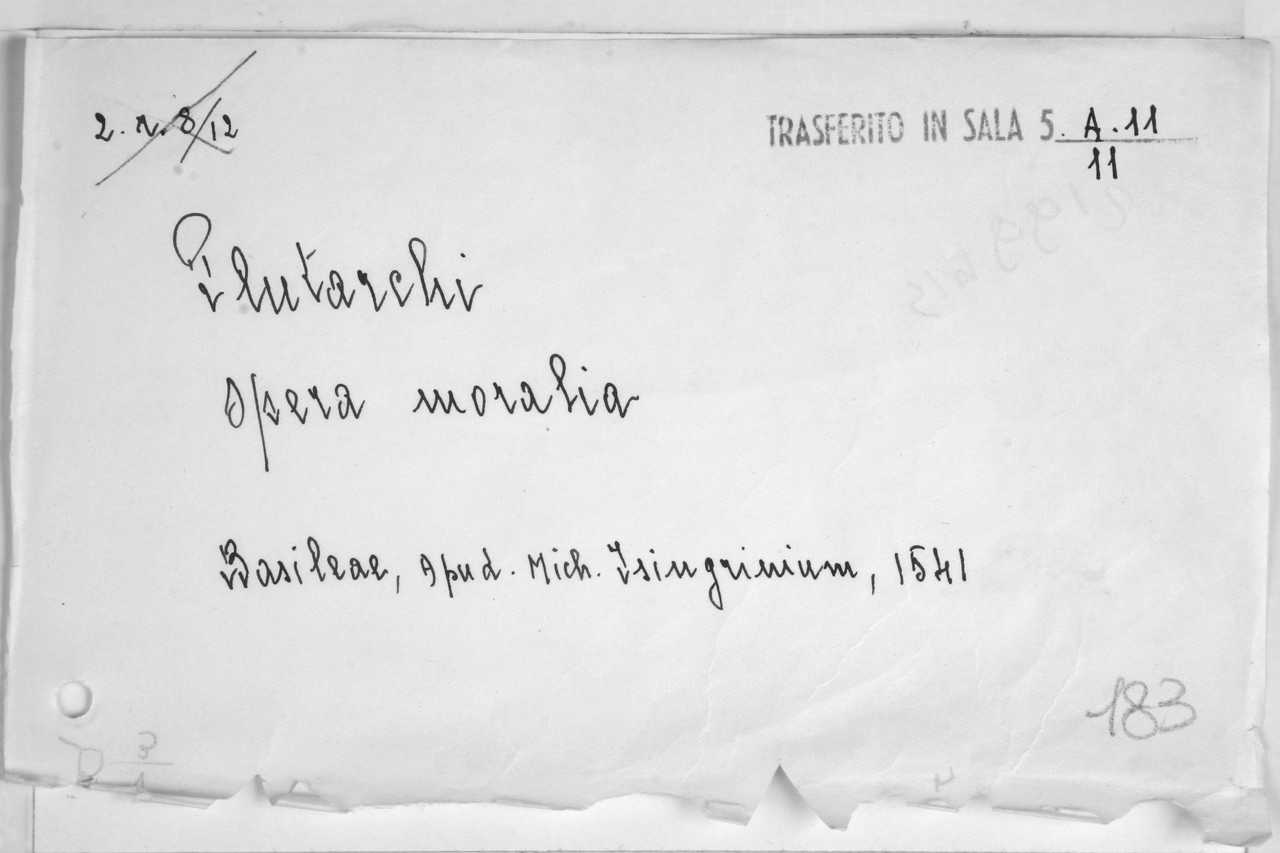 2. r. 8/12
TRASFERITO IN SALA 5. A.11
11
Plutarchi
Opera moralia
Basileae, Apud. Mich. Isingrinium, 1541
183